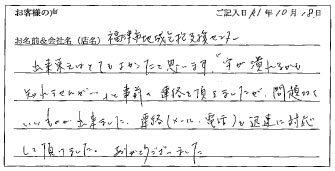 お客様の声 ご記入日 R1年10月18日
お名前&会社名(店名) 福津市地域包括支援センター
出来栄えはとてもよかったと思います。字が潰れるかも
しれませんが…と事前に連絡を頂きましたが、問題なく
いいものが出来ました。連絡(メール・電話)も迅速に対応
して頂けました。ありがとうございました